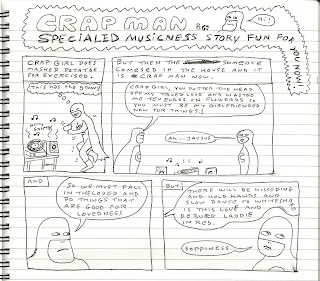 CRAP MAN
BY
HI!
SPECIALED MUSICNESS STORY FUN FOR
YOU NOW!
CRAP GIRL DOES
MASHED POTATOE
FOR EXERCISED.
THIS HAS THE GROOVY
BUT THEN THE SOMEONE
CAMESED IN THE HOUSE AND IT
IS CRAP MAN NOW.
CRAP GIRL, YOU PUTTED THE HEAD
OFF MY TRUED LOVE AND WASTED
ME TEN EUROS ON FLOWERDS SO
YOU MUST BE MY GIRLFRIENDED
NOW FOR THINGS!
AH...
AND
SO WE MUST FALL
IN THE LOVED AND
DO THINGS THAT
ARE GOOD FOR
LOVEDNESS
BUT
THERE WILL BE KISSEDING
AND HOLD HANDS AND
SLOW DANCE TO WHITESNA
IS THIS LOVE AND
DEBURG LADDIE
IN RED.
SUPPINESS